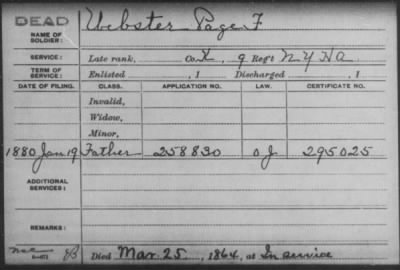 DEAD
Webster Page F
NAME OF SOLDIER:
SERVICE: Late rank, Co. K, 9 Reg't N Y H A
TERM OF SERVICE: Enlisted , 1 Discharged , 1
DATE OF FILING. CLASS. APPLICATION NO. LAW. CERTIFICATE NO.
Invalid,
Widow,
Minor,
1880 Jan 19 Father 258830 O J 295025
ADDITIONAL SERVICES:
REMARKS:
Died Mar. 25, 1864, at In service